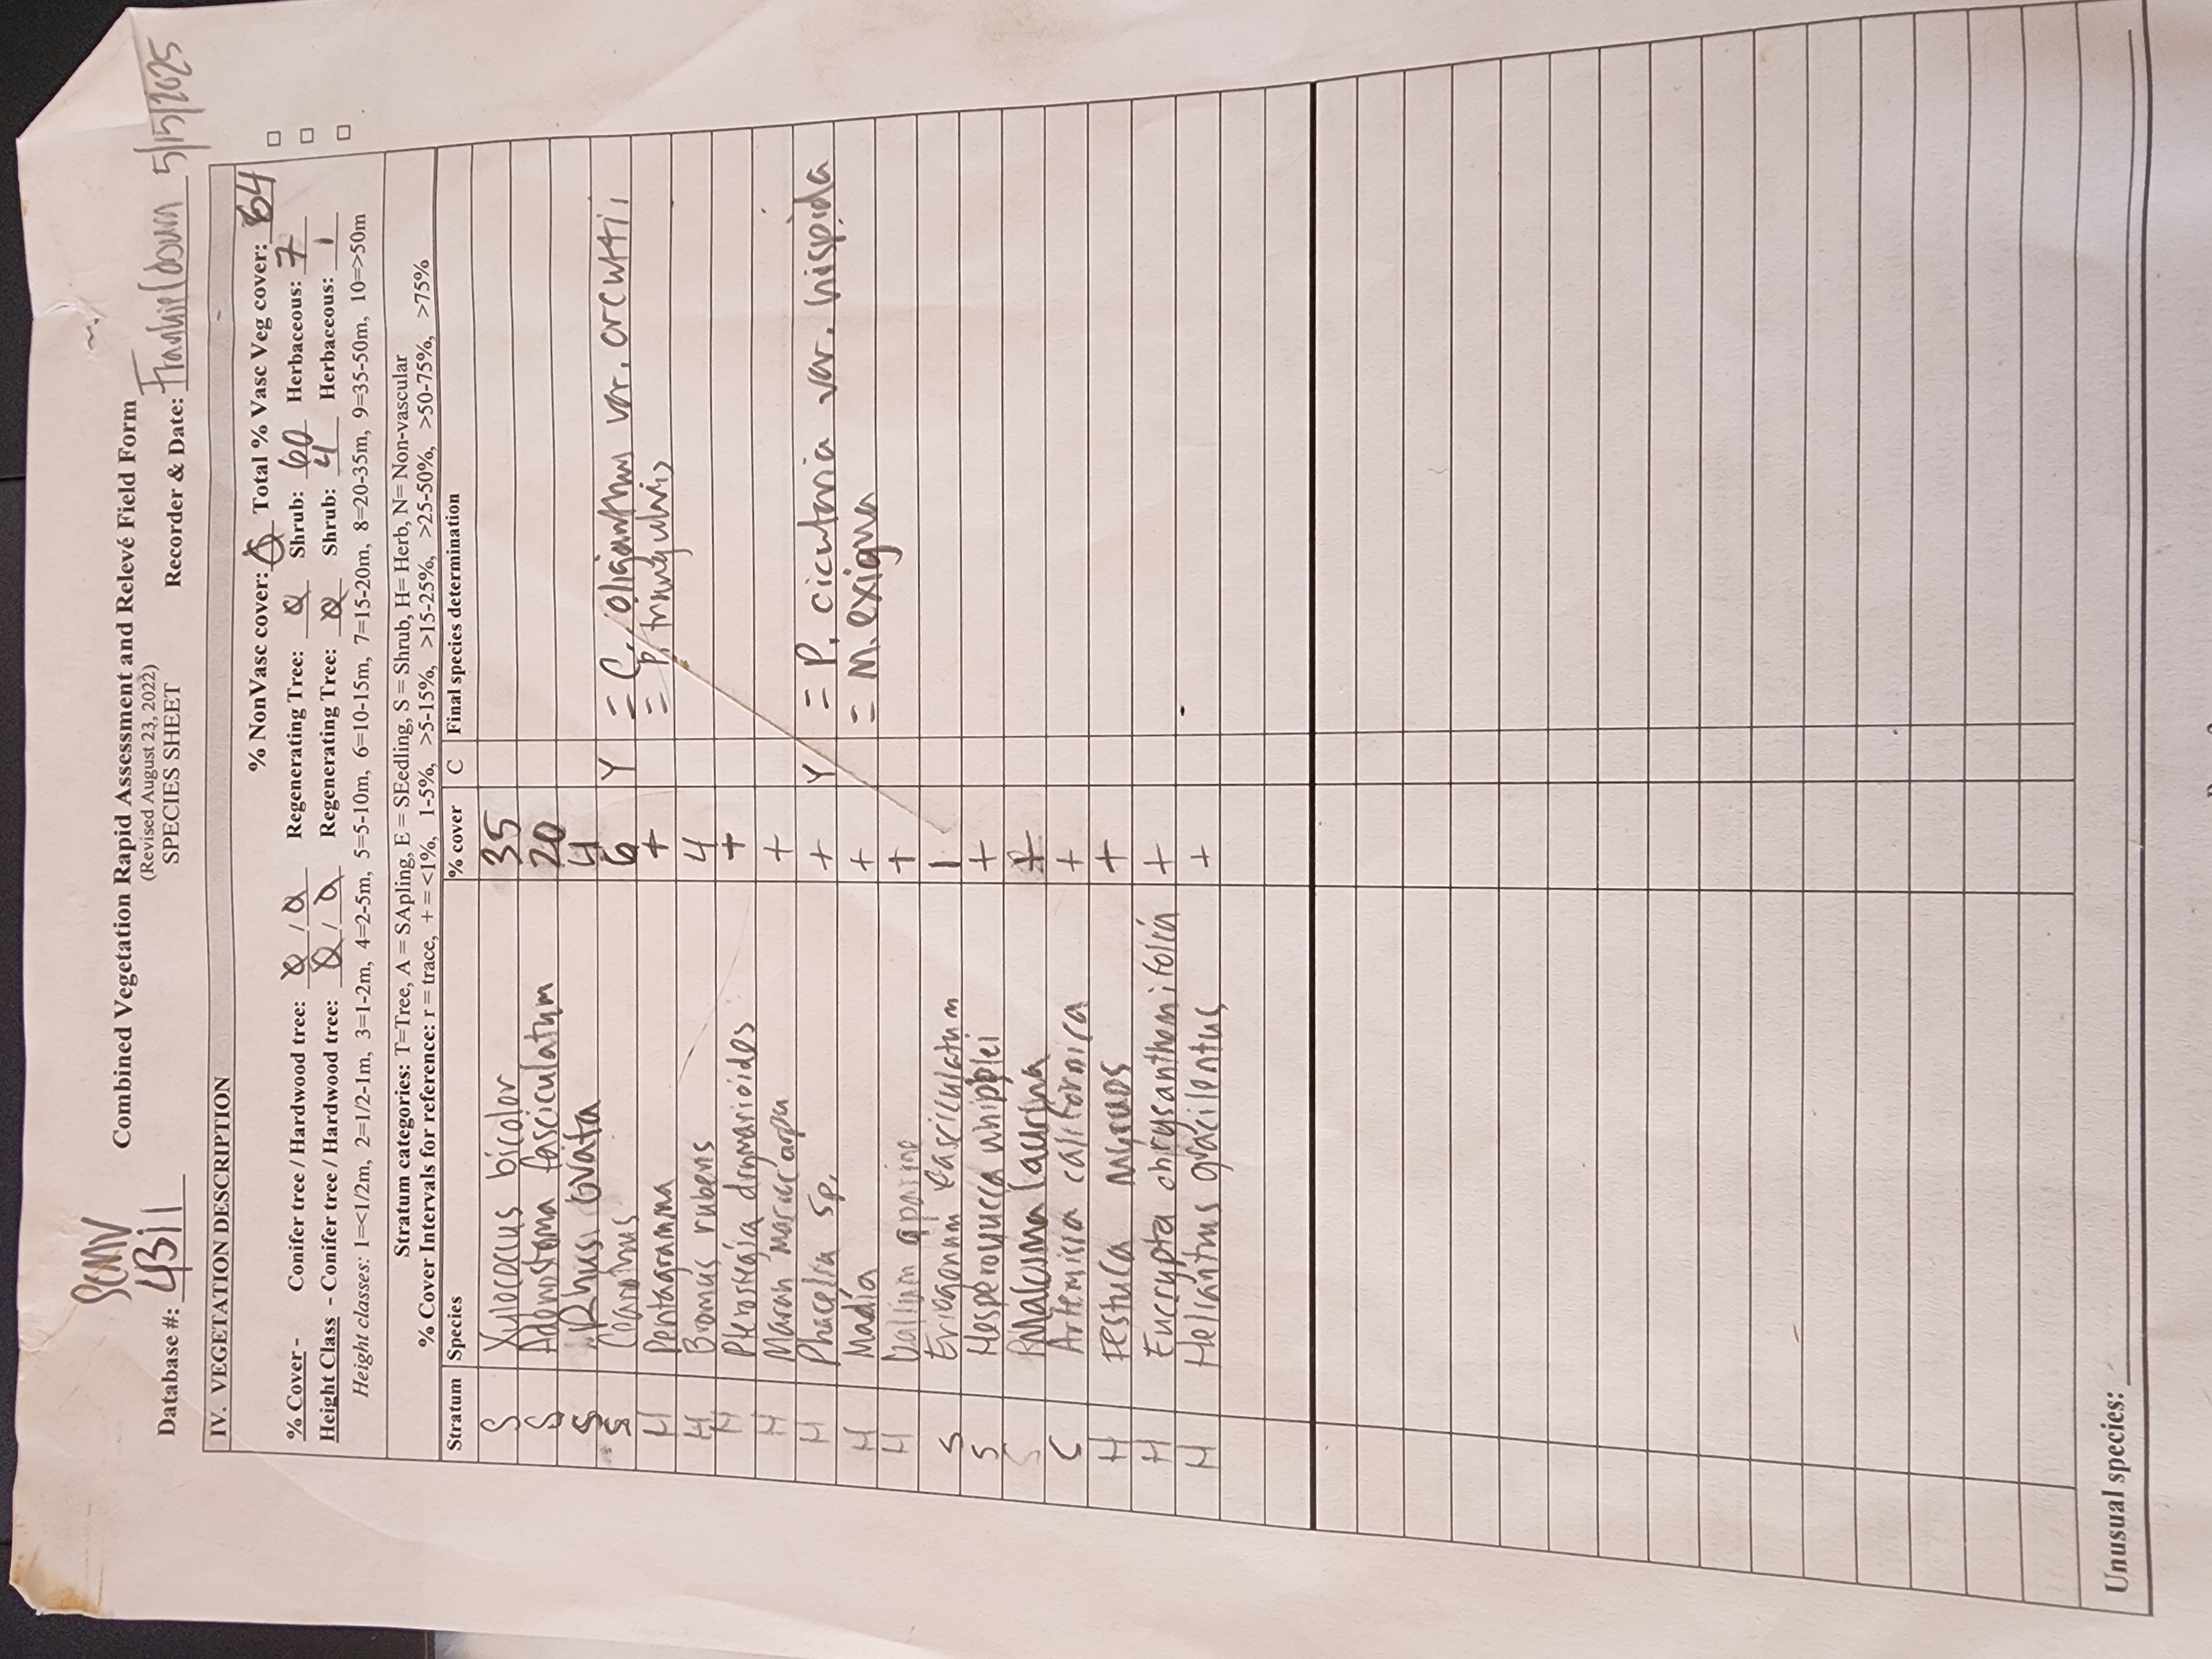 SCMV
Combined Vegetation Rapid Assessment and Relevé Field Form
(Revised August 23, 2022)
SPECIES SHEET
Database #: 4311
Recorder & Date: 5/15/2025
IV. VEGETATION DESCRIPTION
% NonVasc cover: 0 Total % Vasc Veg cover: 64
% Cover - Conifer tree / Hardwood tree: 0 / 0 Regenerating Tree: 0 Shrub: 60 Herbaceous: 7
Height Class - Conifer tree / Hardwood tree: 0 / 0 Regenerating Tree: 0 Shrub: 4 Herbaceous: 1
Height classes: 1=<1/2m, 2=1/2-1m, 3=1-2m, 4=2-5m, 5=5-10m, 6=10-15m, 7=15-20m, 8=20-35m, 9=35-50m, 10=>50m
Stratum categories: T=Tree, A = SApling, E = SEedling, S = Shrub, H= Herb, N= Non-vascular
% Cover Intervals for reference: r = trace, + = <1%, 1-5%, >5-15%, >15-25%, >25-50%, >50-75%, >75%
Stratum Species % cover C Final species determination
S Xylococcus bicolor 35
S Adenostoma fasciculatum 20
S Rhus ovata 4
S Ceanothus 6 Y = C. oliganthus var. orcuttii
H Pentagramma + = p. triangularis
H Bromus rubens 4
H Pterostegia drymarioides +
H Marah macrocarpa +
H Phacelia sp. + Y = P. cicutaria var. hispida
H Madia + = M. exigua
H aparine +
S Eriogonum fasciculatum 1
S Hesperoyucca whipplei +
S Malosma laurina +
S Artemisia californica +
H Festuca myuros +
H Eucrypta chrysanthemifolia +
H Helianthus gracilentus +
Unusual species: